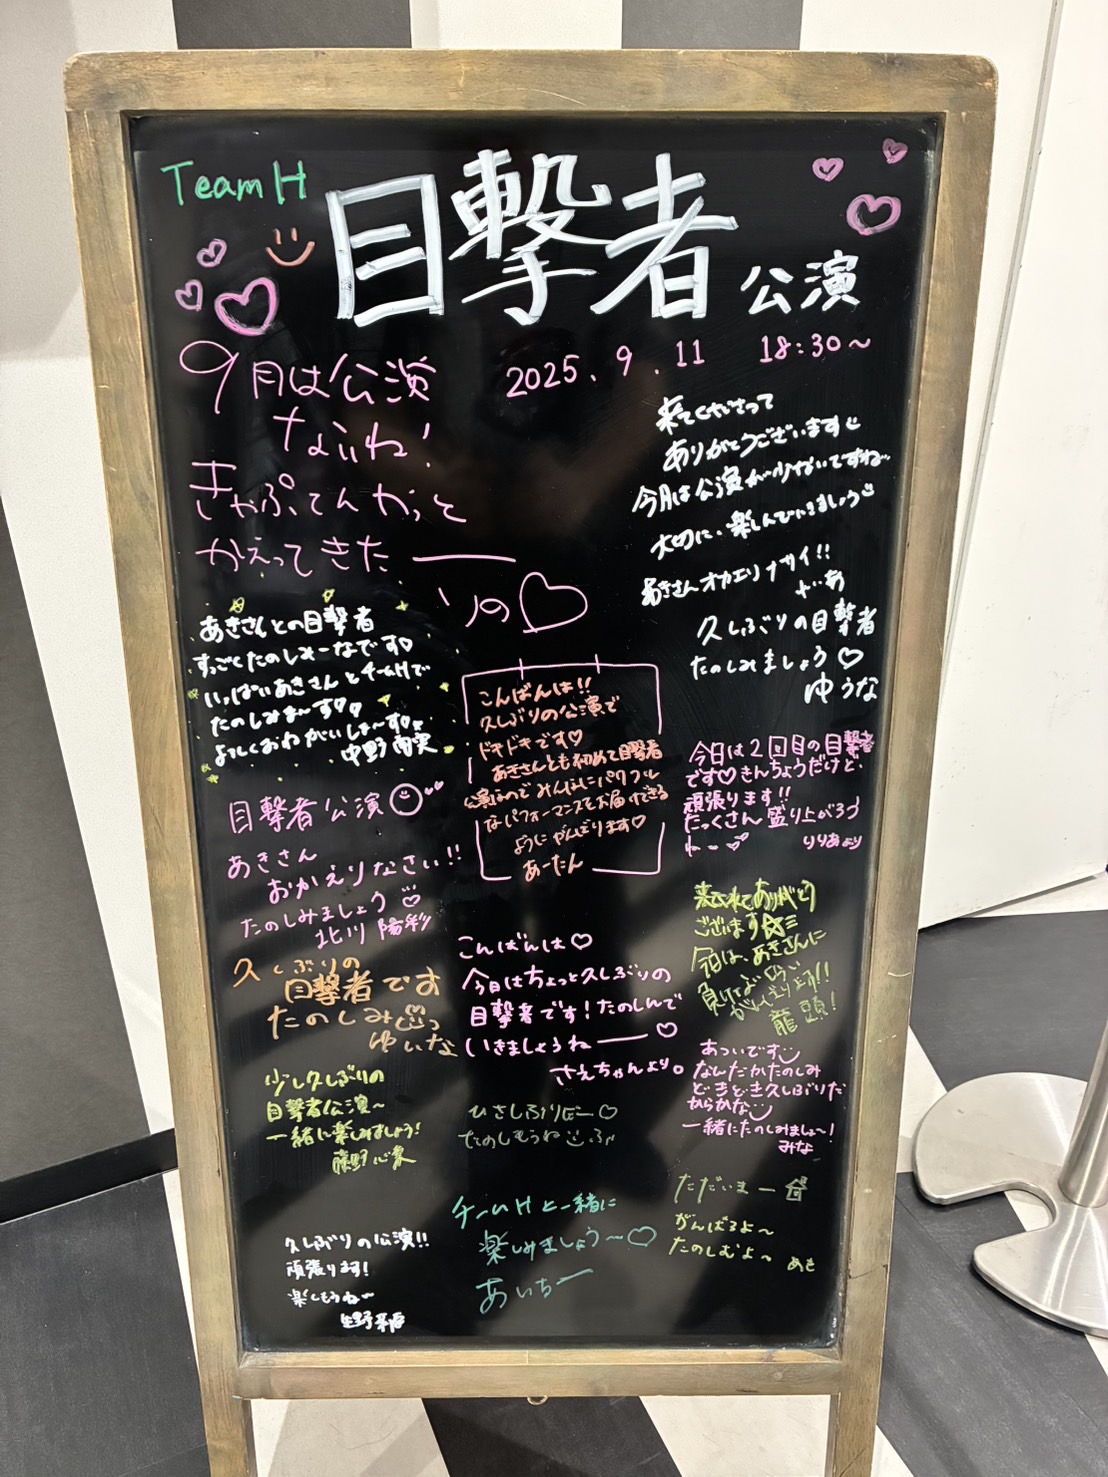 Team H
目撃者 公演
2025. 9. 11 18:30～
9月は公演
ないね!
きゃぷてんやっと
かえってきた ――
りの♡
来てくださって
ありがとうございます
今月は公演が少ないですね
大切に、楽しんでいきましょう
あきさんオカエリナサイ!!
久しぶりの目撃者
たのしみましょう♡
ゆうな
あきさんとの目撃者
すっごくたのしみーなです♡
いっぱいあきさんとチームHで
たのしみまーす♡♡
よろしくおねがいしまーす♡
中野 愛実
こんばんは!!
久しぶりの公演で
ドキドキです♡
あきさんとも初めて目撃者
公演なのでみんなにパワフル
なパフォーマンスをお届けできる
ようにがんばります♡
あーたん
今日は2回目の目撃者
です♡きんちょうだけど、
頑張ります!!
たっくさん盛り上がろう
ねー
りりあより
目撃者公演
あきさん
おかえりなさい!!
たのしみましょう
北川 陽彩
来てくれてありがとう
ございます☆
今日は、あきさんに
負けないくらい
がんばります!!
龍頭!
久しぶりの
目撃者です
たのしみっ
ゆいな
こんばんは♡
今日はちょっと久しぶりの
目撃者です!たのしんで
いきましょうね――♡
さえちゃんより。
あついです
なんだかたのしみ
どきどき久しぶりだ
からかな
一緒にたのしみましょ～!
みな
少し久しぶりの
目撃者公演～
一緒に楽しみましょう!
藤野 心葉
ひさしぶりだー♡
たのしもうね
ただいまー
がんばるよ～
たのしむよ～ あき
チームHと一緒に
楽しみましょう～♡
あいちー
久しぶりの公演!!
頑張ります!
楽しもうね～
生野 莉奈